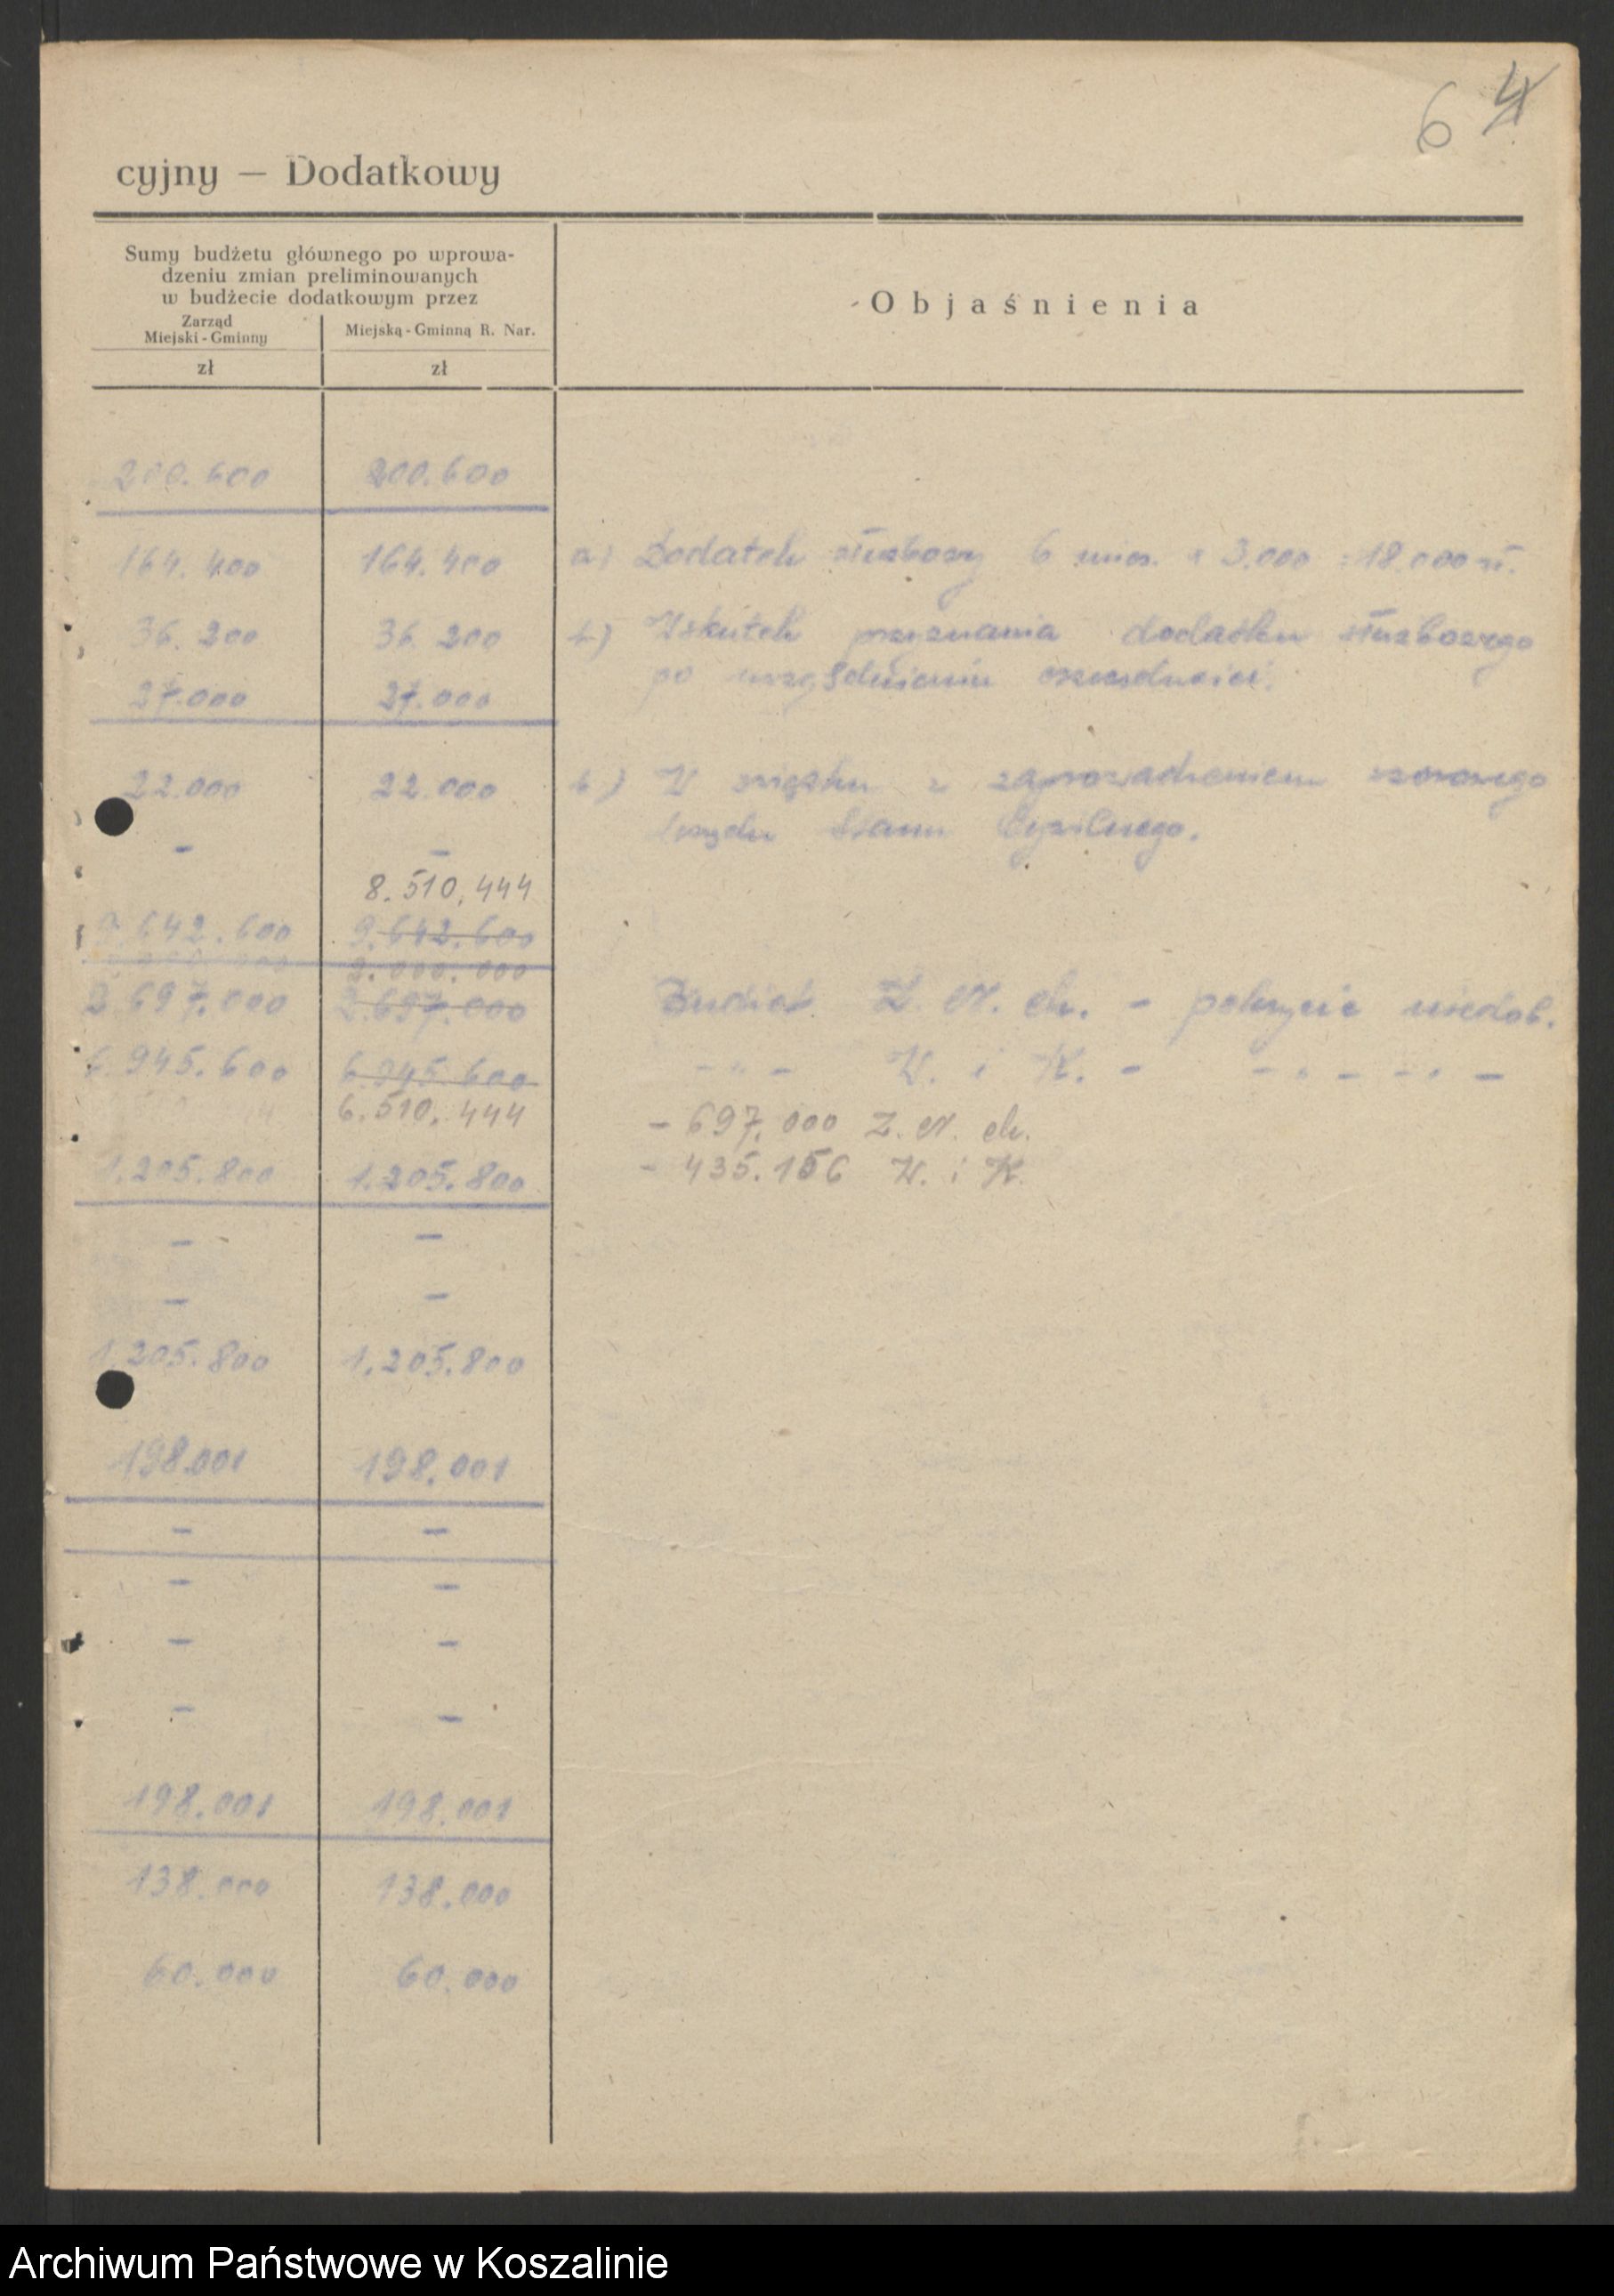 6 4
cyjny — Dodatkowy
Sumy budżetu głównego po wprowa-
dzeniu zmian preliminowanych
w budżecie dodatkowym przez
Zarząd
Miejski - Gminny
Miejską - Gminną R. Nar.
Objaśnienia
zł zł
200.600 200.600
164.400 164.400 a) Dodatek służbowy 6 mies. x 3.000 = 18.000 zł.
36.200 36.200 b) Wskutek przyznania dodatku służbowego
po uwzględnieniu oszczędności.
27.000 27.000
22.000 22.000 b) W związku z zaprowadzeniem wzorowego
Urzędu Stanu Cywilnego.
– –
8.510,444
9.642.600 9.642.600
2.000.000
2.697.000 2.697.000 Budżet Z. N. ch. – pokrycie niedob.
6.945.600 6.945.600 – „ – W. i K. – – „ – – „ –
6.510.444 – 697.000 Z. N. ch.
1.205.800 1.205.800 – 435.156 W. i K.
– –
– –
1.205.800 1.205.800
198.001 198.001
– –
– –
– –
– –
198.001 198.001
138.000 138.000
60.000 60.000
Archiwum Państwowe w Koszalinie